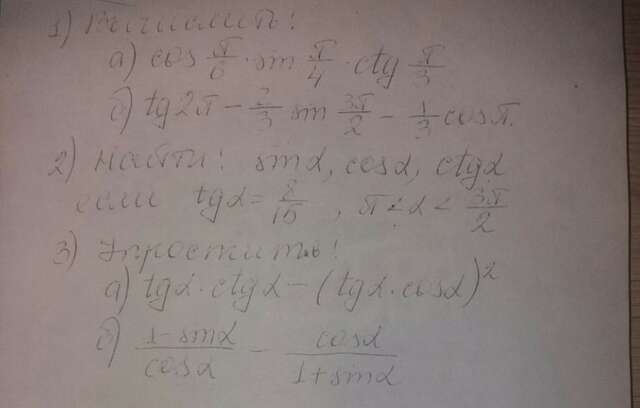 1) Вычислить!
а) cos π/6 · sin π/4 · ctg π/3
б) tg2π - 2/3 sin 3π/2 - 1/3 cosπ.
2) Найти! sinα, cosα, ctgα
если tgα = 8/15, π < α < 3π/2
3) Упростить!
а) tgα · ctgα - (tgα · cosα)²
б) 1-sinα/cosα - cosα/1+sinα